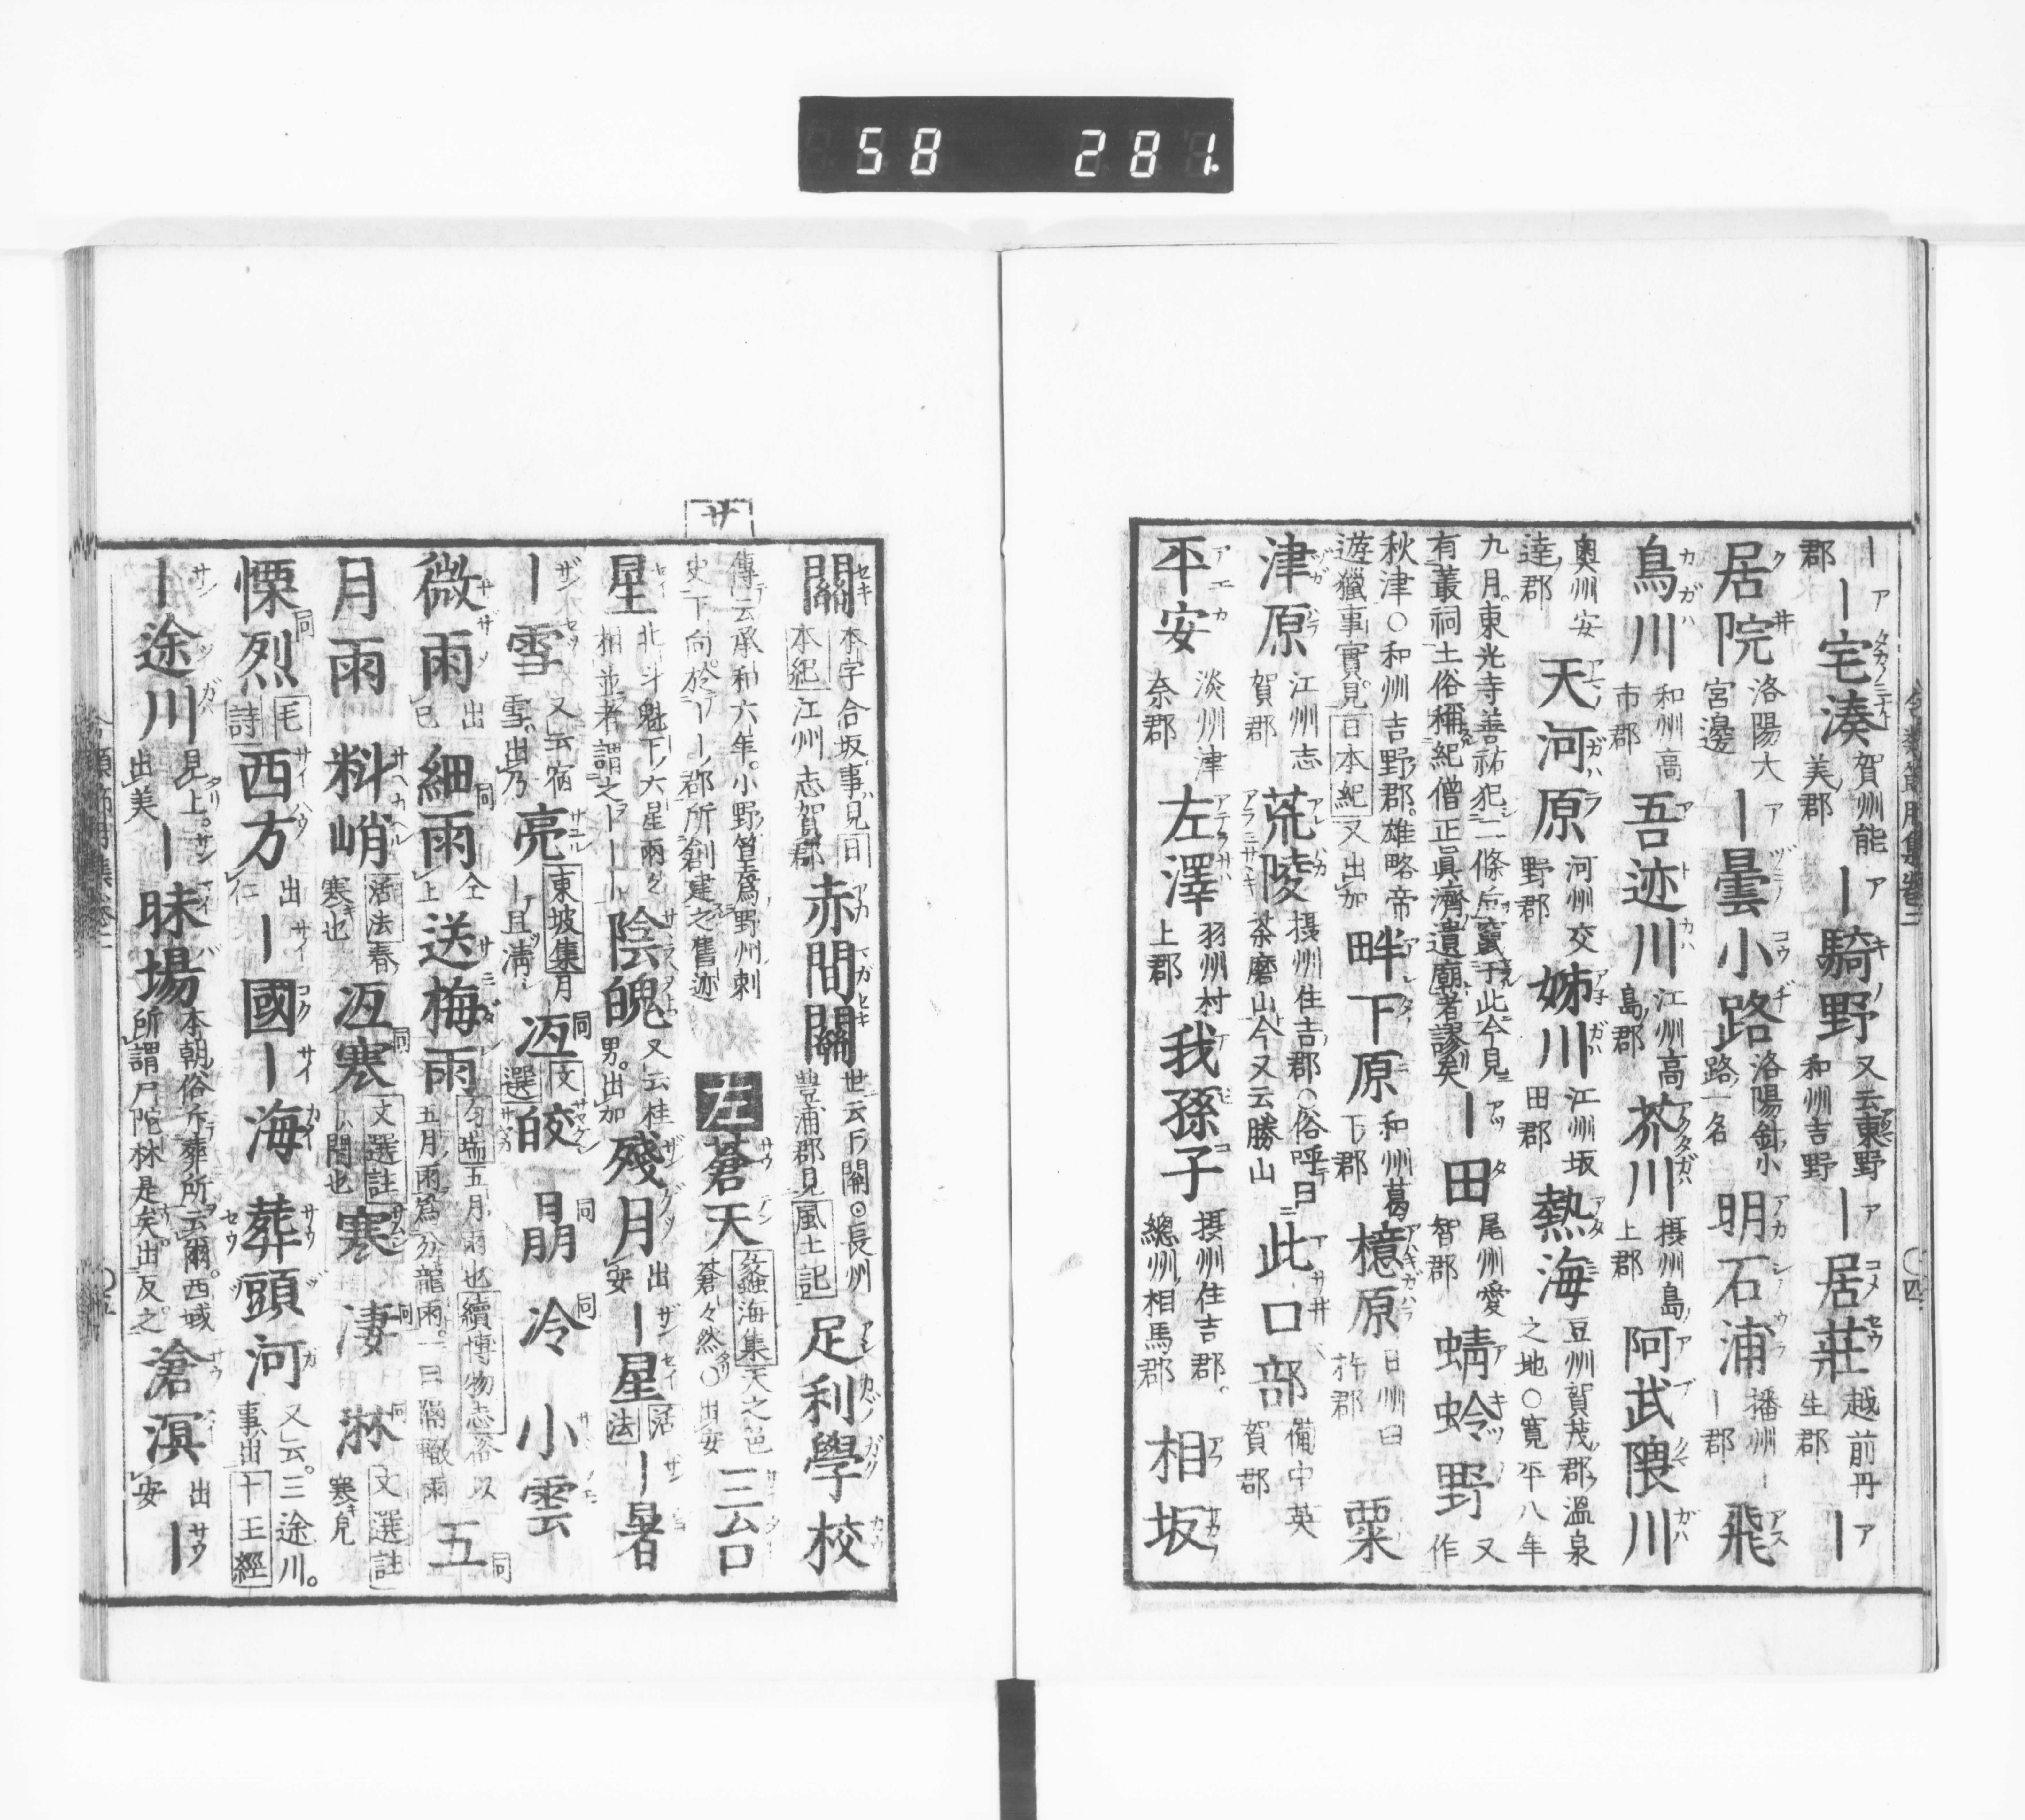 58 281.
郡
｜｜宅湊 賀州能美郡 ｜騎野 又云東野和州吉野 ｜居莊 越前丹生郡 ｜
居院 洛陽大宮邊 ｜曇小路 洛陽針小路一名 明石浦 播州｜郡 飛
鳥川 和州高市郡 吾迹川 江州高島郡 芥川 摂州島上郡 阿武隈川
奥州安達郡 天河原 河州交野郡 姉川 江州坂田郡 熱海 豆州賀茂郡温泉之地○寛平八年
九月東光寺善祐犯二條后竄于此今見有叢祠土俗稱紀僧正眞濟遺廟者謬矣 ｜田 尾州愛智郡 蜻蛉野 又作
秋津○和州吉野郡雄略帝遊獵事實見日本紀又出加 畔下原 和州葛下郡 檍原 日州臼杵郡 粟
津原 江州志賀郡 荒陵 摂州住吉郡○俗呼曰茶磨山今又云勝山 此口部 備中英賀郡
平安 淡州津奈郡 左澤 羽州村上郡 我孫子 摂州住吉郡。總州相馬郡 相坂
サ
關 本字合坂事見日本紀江州志賀郡 赤間關 世云下關○長州豊浦郡見風土記 足利學校
傳云承和六年。小野篁爲野州刺史下向於｜｜郡所創建之舊迹 左 蒼天 蠡海集天之色蒼々然○出安 三台
星 北斗魁下六星兩々相並者謂之｜｜｜ 陰魄 又云桂男。出加 殘月 出安 ｜星 活法 ｜暑
｜雪 又云宿雪。出乃 亮 東坡集月｜且淸 冱 同文選 皎 朤 同 冷 同 小雲
微雨 出巳 細雨 同仝上 送梅雨 五月雨也續博物志俗以五月雨爲分龍雨一曰隔轍雨 五 同
月雨 料峭 活法春寒也 冱寒 同文選註閉也 寒 凄 同 淋 同文選註寒皃
慄烈 同毛詩 西方 出仁 ｜國 ｜海 葬頭河 又云。三途川。事出十王經
｜途川 見上。出美 ｜昧場 本朝俗斥葬所云爾。西域所謂尸陀林是矣出友之 滄溟 出安 ｜